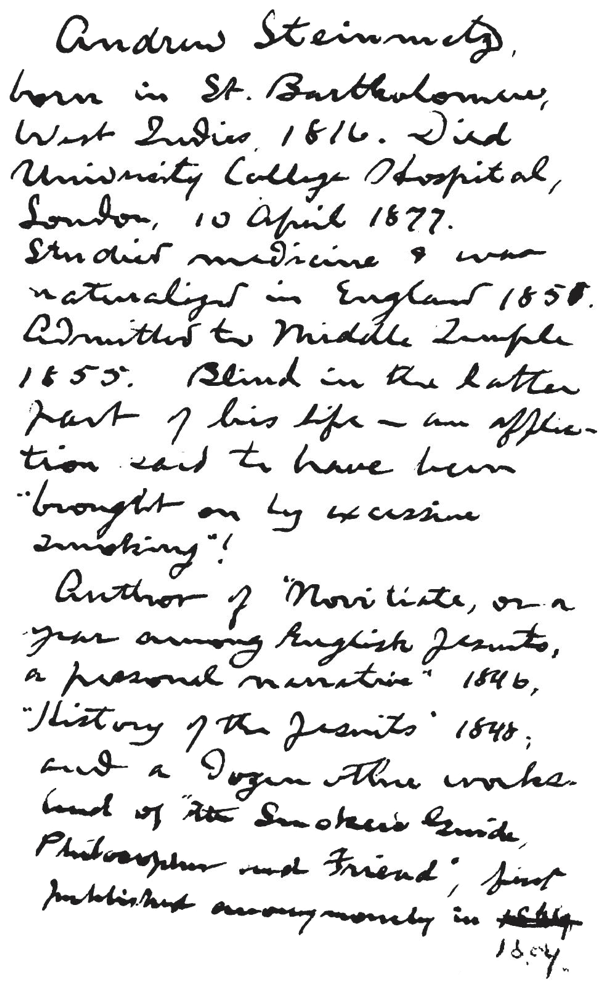 Andrew Steinmetz,
born in St. Bartholomew,
West Indies, 1816. Died
University College Hospital,
London, 10 April 1877.
Studied medicine & was
naturalized in England
Admitted to Middle Temple
1855. Blind in the latter
part of his life – an afflic-
tion said to have been
"brought on by excessive
smoking"!
Author of "Novitiate, or a
year among English Jesuits,
a personal narrative" 1846,
"History of the Jesuits" 1848;
and a dozen other works.
and of "the Smoker's Guide,
Philosopher and Friend", first
published anonymously in